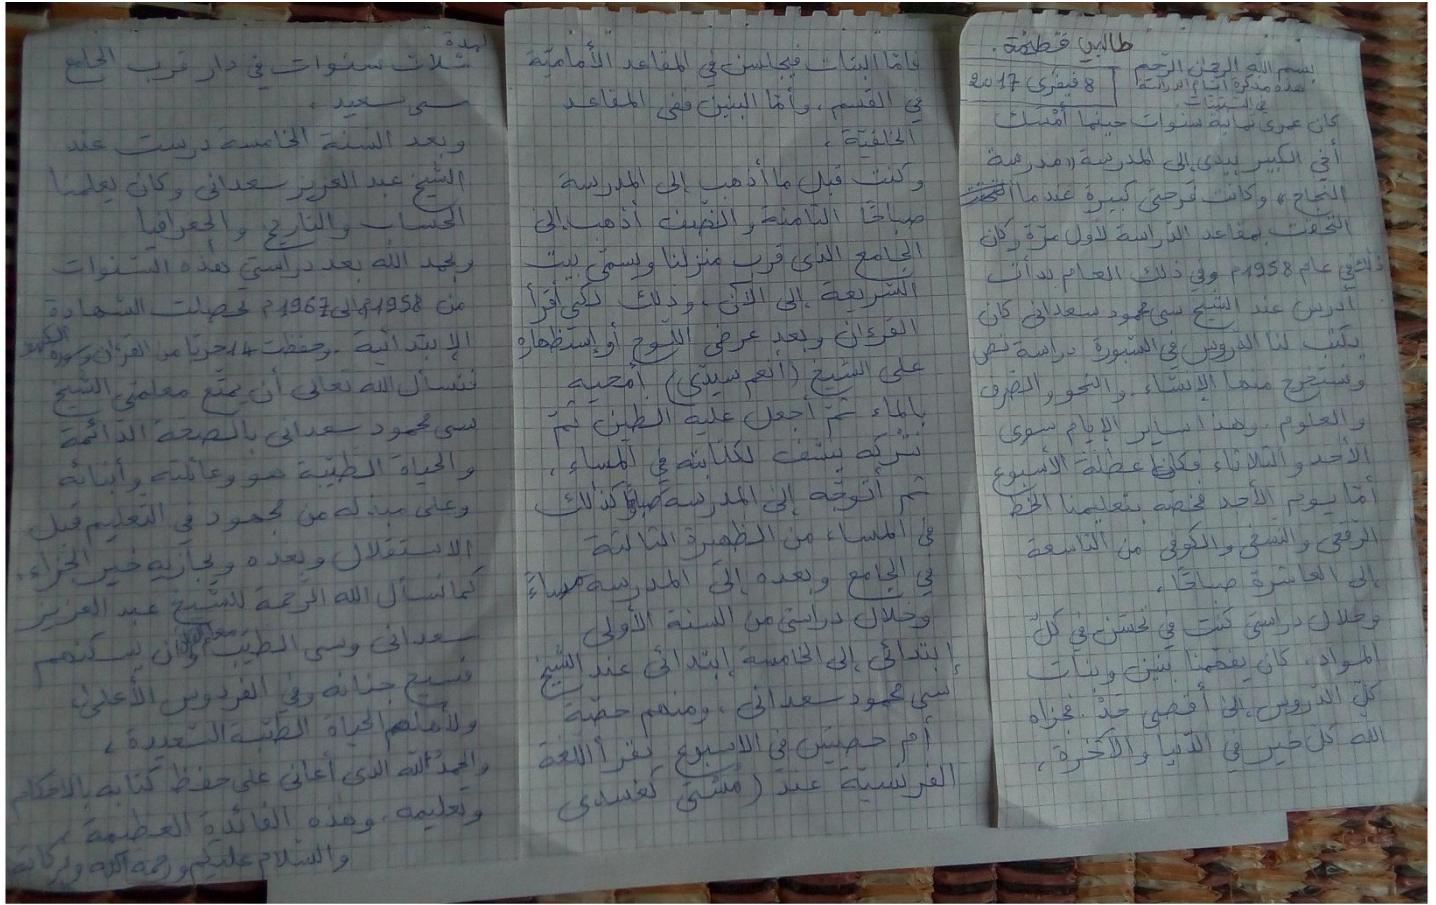 طالبي فطيمة.
بسم الله الرحمن الرحيم
8 فيفري 2017
هذه مذكرة أيام الدراسة
في الستينات
كان عمري ثمانية سنوات حينما أمسك
أخي الكبير بيدي إلى المدرسة «مدرسة
النجاح» وكانت فرحتي كبيرة عندما
التحقت بمقاعد الدراسة لأول مرة وكان
ذلك في عام 1958م وفي ذلك العام بدأت
أدرس عند الشيخ سي محمود سعداني كان
يكتب لنا الدروس في السبورة دراسة نص
ونستخرج منها الإنشاء. والنحو والصرف
والعلوم. وهذا ساير الأيام سوى
الأحد والثلاثاء فكانا عطلة الأسبوع
أما يوم الأحد فخصه بتعليمنا الخط
الرقعي والنسخي والكوفي من التاسعة
إلى العاشرة صباحًا.
وخلال دراستي كنت في تحسن في كل
المواد. كان يفهمنا بنين وبنات
كل الدروس إلى أقصى حد. فجزاه
الله كل خير في الدنيا والآخرة،
فأما البنات فيجلسن في المقاعد الأمامية
في القسم. وأما البنين ففي المقاعد
الخلفية.
وكنت قبل ما أذهب إلى المدرسة
صباحًا الثامنة والنصف أذهب إلى
الجامع الذي قرب منزلنا ويسمى بيت
الشريعة إلى الآن. وذلك لكي أقرأ
القرءان وبعد عرض اللوح أو إستظهاره
على الشيخ (أنعم سيدي) أمحيه
بالماء ثم أجعل عليه الطين ثم
نتركه ينشف لكتابته في المساء،
ثم أتوجه إلى المدرسة صباحًا وكذلك
في المساء من الظهيرة الثالثة
في الجامع وبعده إلى المدرسة مساءً
وخلال دراستي من السنة الأولى
إبتدائي إلى الخامسة إبتدائي عند الشيخ
سي محمود سعداني. ومنهم حصة
أم حصتين في الأسبوع نقرأ اللغة
الفرنسية عند (
لمدة
ثلاث سنوات في دار قرب الجامع
سي سعيد.
وبعد السنة الخامسة درست عند
الشيخ عبد العزيز سعداني وكان يعلمنا
الحساب والتاريخ والجغرافيا
وبحمد الله بعد دراستي هذه السنوات
من 1958م إلى 1967م تحصلت الشهادة
الإبتدائية. وحفظت 14 حزبًا من القرءان
نتسأل الله تعالى أن يمتع معلمي الشيخ
سي محمود سعداني بالصحة الدائمة
والحياة الطيبة هو وعائلته وأبنائه
وعلى مبذله من مجهود في التعليم قبل
الاستقلال وبعده ويجازيه خير الجزاء.
كما نسأل الله الرحمة للشيخ عبد العزيز
سعداني وسي الطيب وأن يسكنهم
فسيح جنانه وفي الفردوس الأعلى.
ولأهلهم الحياة الطيبة السعيدة،
والحمد لله الذي أعانني على حفظ كتابه بالأحكام
وتعليمه. وهذه الفائدة العظيمة،
والسلام عليكم ورحمة الله وبركاته